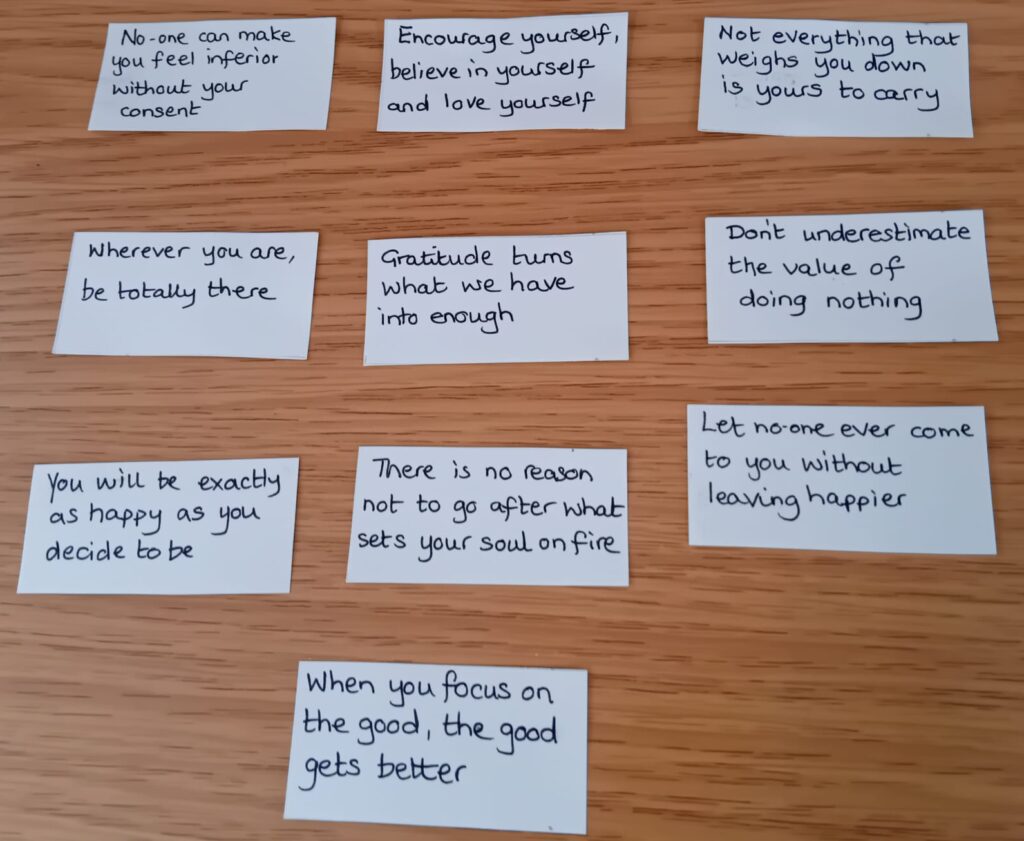 No-one can make
you feel inferior
without your
consent
Encourage yourself,
believe in yourself
and love yourself
Not everything that
weighs you down
is yours to carry
Wherever you are,
be totally there
Gratitude turns
what we have
into enough
Don't underestimate
the value of
doing nothing
You will be exactly
as happy as you
decide to be
There is no reason
not to go after what
sets your soul on fire
Let no-one ever come
to you without
leaving happier
When you focus on
the good, the good
gets better